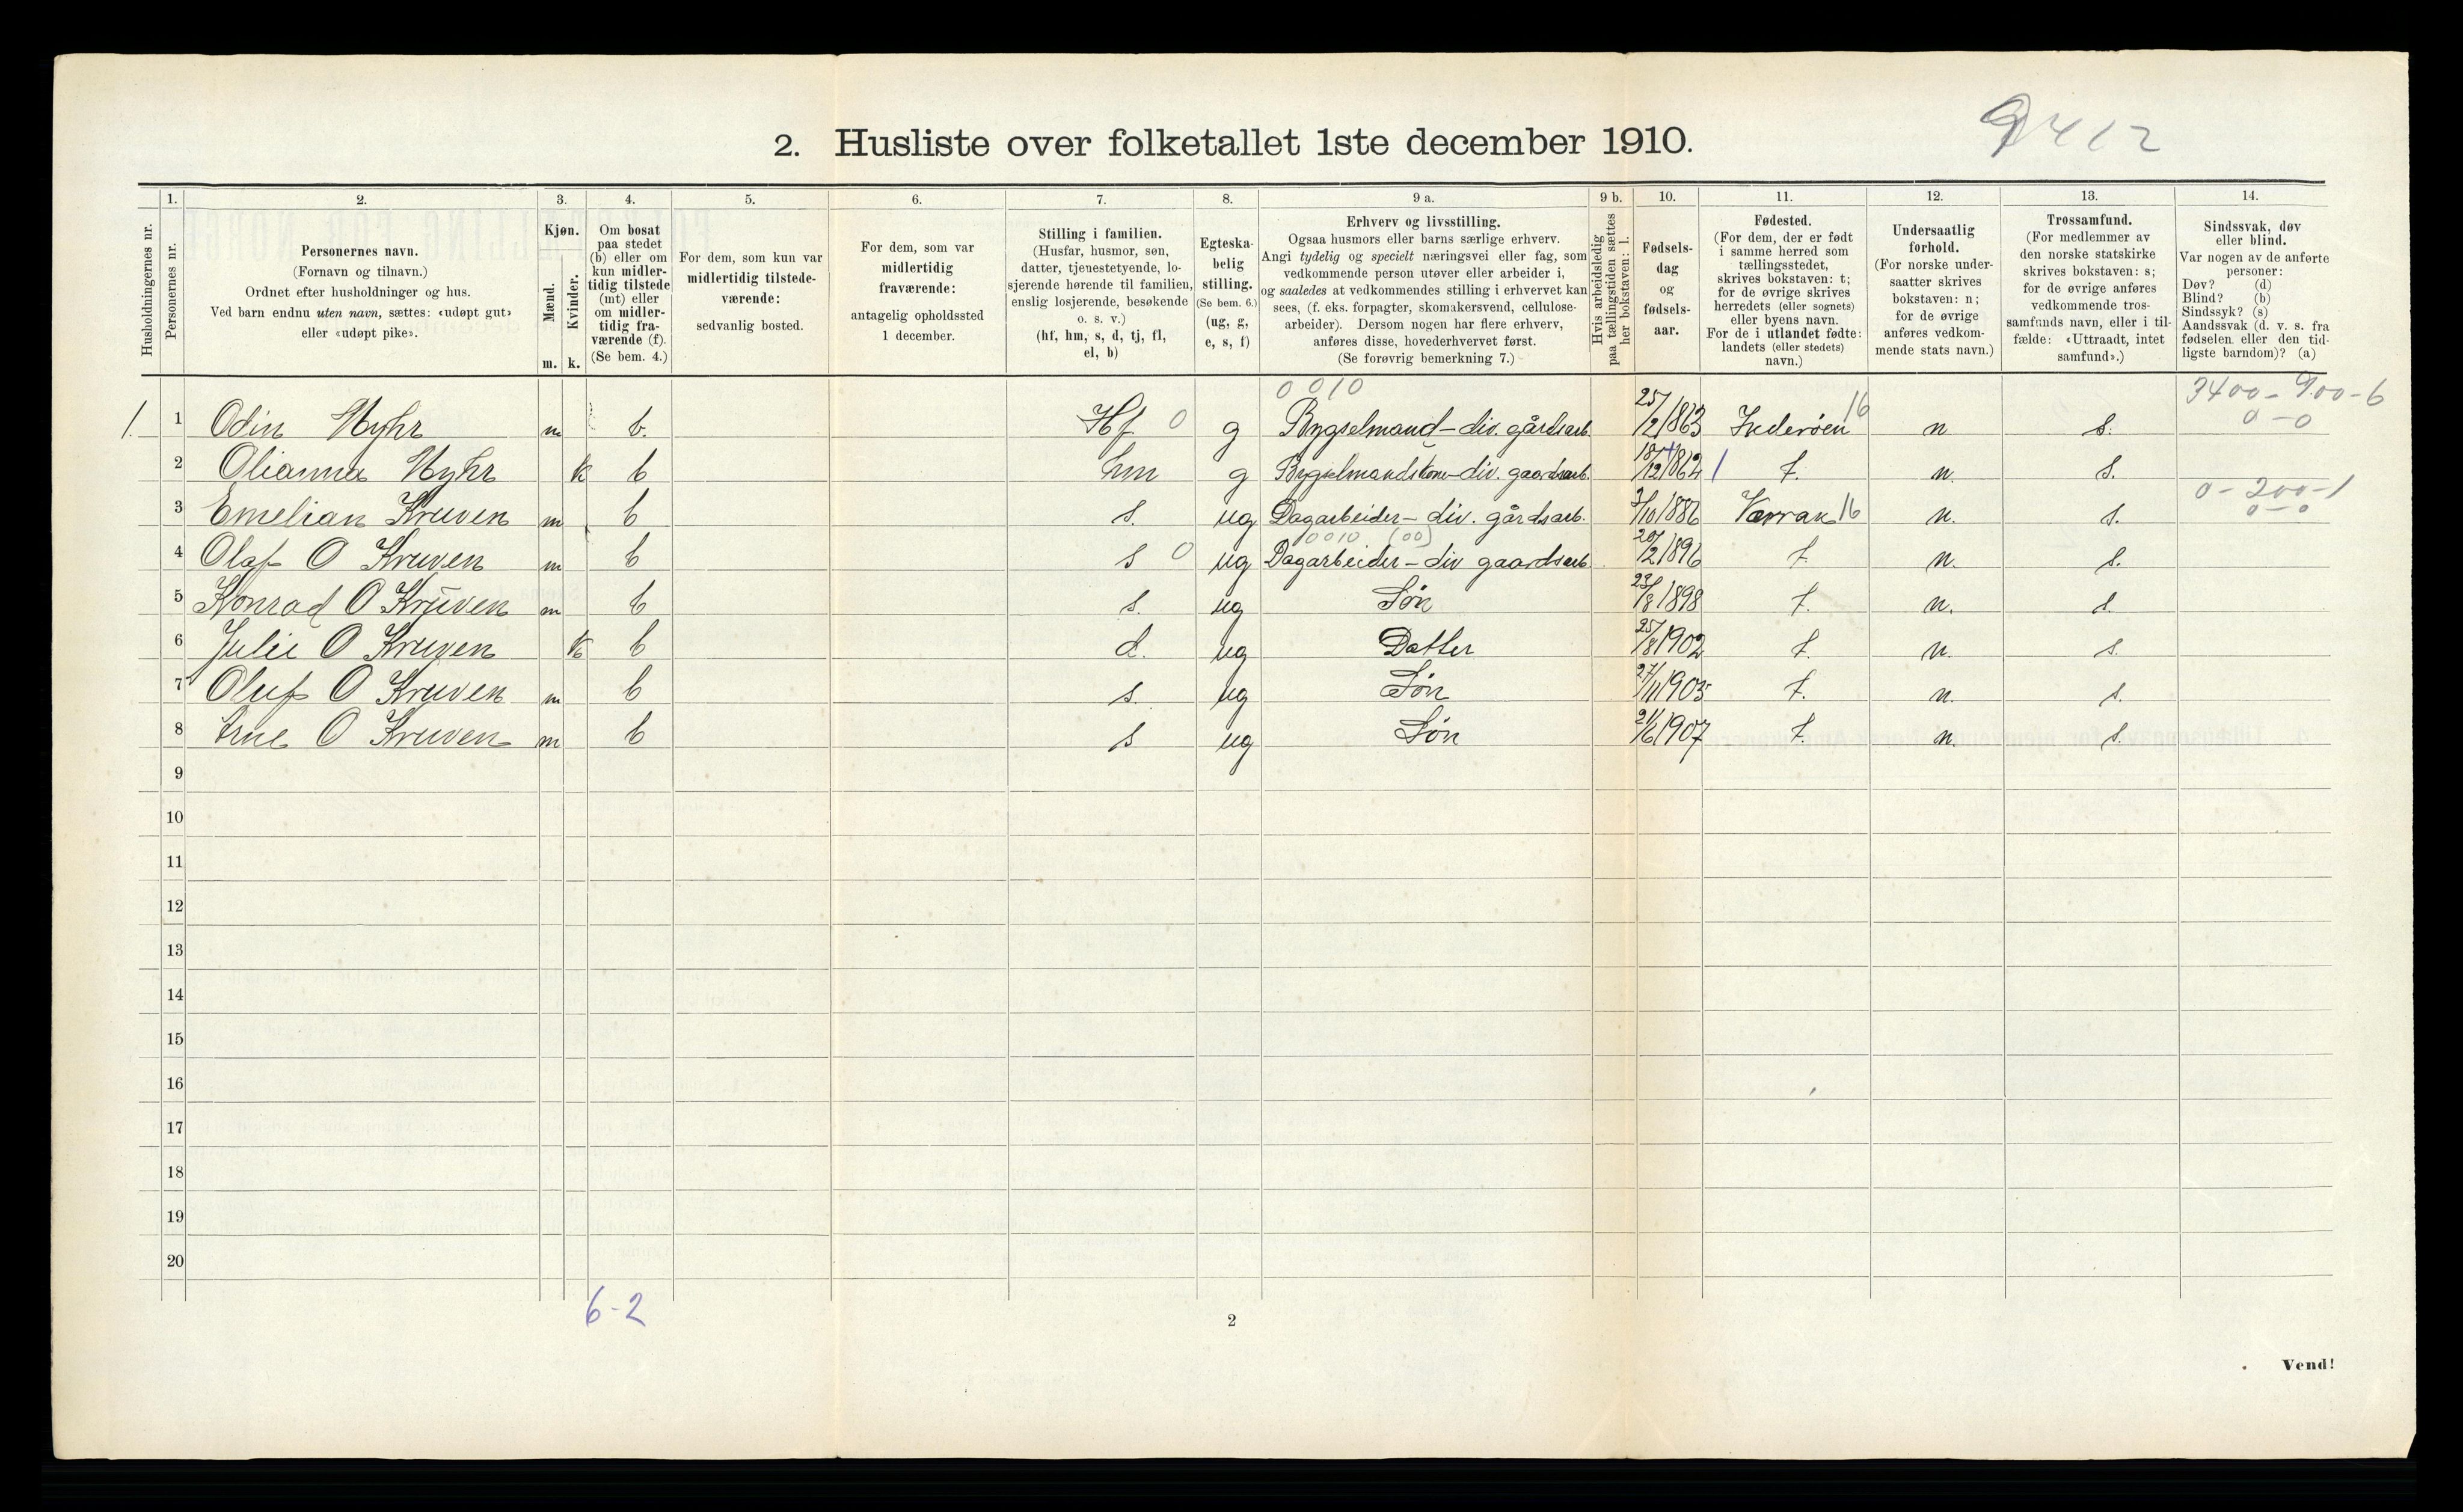 9412
2. Husliste over folketallet 1ste december 1910.
Husholdningernes nr.
1. Personernes nr.
2. Personernes navn. (Fornavn og tilnavn.) Ordnet efter husholdninger og hus. Ved barn endnu uten navn, sættes: «udøpt gut» eller «udøpt pike».
3. Kjøn. Mænd. m. Kvinder. k.
4. Om bosat paa stedet (b) eller om kun midlertidig tilstede (mt) eller om midlertidig fraværende (f). (Se bem. 4.)
5. For dem, som kun var midlertidig tilstedeværende: sedvanlig bosted.
6. For dem, som var midlertidig fraværende: antagelig opholdssted 1 december.
7. Stilling i familien. (Husfar, husmor, søn, datter, tjenestetyende, losjerende hørende til familien, enslig losjerende, besøkende o. s. v.) (hf, hm, s, d, tj, fl, el, b)
8. Egteskabelig stilling. (Se bem. 6.) (ug, g, e, s, f)
9 a. Erhverv og livsstilling. Ogsaa husmors eller barns særlige erhverv. Angi tydelig og specielt næringsvei eller fag, som vedkommende person utøver eller arbeider i, og saaledes at vedkommendes stilling i erhvervet kan sees, (f. eks. forpagter, skomakersvend, cellulosearbeider). Dersom nogen har flere erhverv, anføres disse, hovederhvervet først. (Se forøvrig bemerkning 7.)
9 b. Hvis arbeidsledig paa tællingstiden sættes her bokstaven: l.
10. Fødselsdag og fødselsaar.
11. Fødested. (For dem, der er født i samme herred som tællingsstedet, skrives bokstaven: t; for de øvrige skrives herredets (eller sognets) eller byens navn. For de i utlandet fødte: landets (eller stedets) navn.)
12. Undersaatlig forhold. (For norske undersaatter skrives bokstaven: n; for de øvrige anføres vedkommende stats navn.)
13. Trossamfund. (For medlemmer av den norske statskirke skrives bokstaven: s; for de øvrige anføres vedkommende trossamfunds navn, eller i tilfælde: «Uttraadt, intet samfund».)
14. Sindssvak, døv eller blind. Var nogen av de anførte personer: Døv? (d) Blind? (b) Sindssyk? (s) Aandssvak (d. v. s. fra fødselen eller den tidligste barndom)? (a)
0010 3400-900-6
1. 1 Odin Myhr m b. Hf 0 g Bygselmand-div. gårdsarb. 25/2 1863 Inderøen 16 n s. 0-0
2 Olianna Myhr k b hm g Bygselmandskone-div. gaardsarb. 18/12 1864 1 t. n. s.
3 Emelian Kruven m b s. ug Dagarbeider-div. gårdsarb. 3/10 1886 Værran 16 n. s. 0-200-1 0-0
0010 (00)
4 Olaf O Kruven m b s 0 ug Dagarbeider-div gaardsarb. 20/2 1896 t. n. s.
5 Konrad O Kruven m b s. ug Søn 23/8 1898 t. n. s.
6 Julie O Kruven k b d. ug Datter 25/8 1902 t. n. s.
7 Oluf O Kruven m b s. ug Søn 27/11 1905 t. n. s.
8 Arne O Kruven m b s ug Søn 21/6 1907 t. n. s.
9
10
11
12
13
14
15
16
17
18
19
20
6-2
2
Vend!